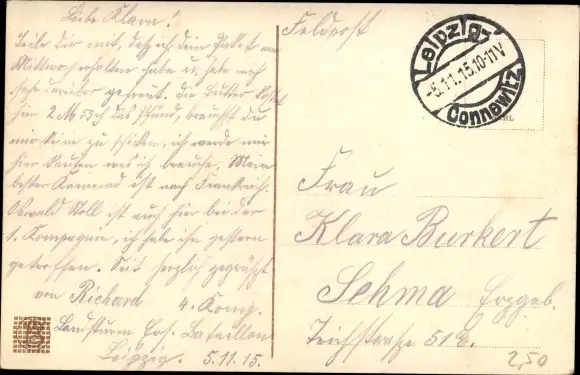 Liebe Klara!
Teile dir mit, daß ich dein Paket am
Mittwoch erhalten habe u. habe mich
sehr wieder gefreut. Die Butter kostet
hier 2 M 53 ch das Pfund, brauchst du
mir keine zu schicken, ich werde mir
hier kaufen was ich brauche. Mein
bester Kamerad ist nach Frankreich.
Oswald Voll ist auch hier bei der
1. Kompagnie, ich habe ihn gestern
getroffen. Seit herzlich gegrüßt
von Richard 4. Komp.
Landsturm Ers. Bataillon
Leipzig. 5.11.15.
Feldpost
Leipzig-
-5.11.15.10-11V
Connewitz
Frau
Klara Burkert
Sehma Erzgeb.
Teichstraße 51
2,50